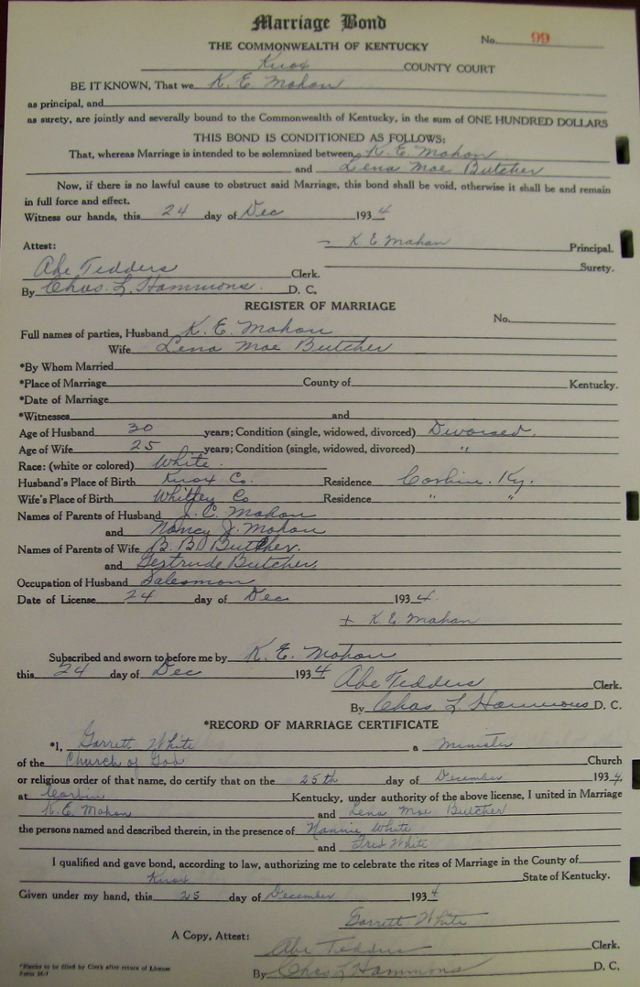 Marriage Bond
THE COMMONWEALTH OF KENTUCKY
No. 99
Knox COUNTY COURT
BE IT KNOWN, That we K. E. Mahan
as principal, and
as surety, are jointly and severally bound to the Commonwealth of Kentucky, in the sum of ONE HUNDRED DOLLARS
THIS BOND IS CONDITIONED AS FOLLOWS:
That, whereas Marriage is intended to be solemnized between K. E. Mahan
and Lena Mae Butcher
Now, if there is no lawful cause to obstruct said Marriage, this bond shall be void, otherwise it shall be and remain
in full force and effect.
Witness our hands, this 24 day of Dec 1934
K E Mahan Principal.
Attest:
Surety.
Abe Tedders Clerk.
By Chas. L. Hammons. D. C.
REGISTER OF MARRIAGE
No.
Full names of parties, Husband K. E. Mahan
Wife Lena Mae Butcher
*By Whom Married
*Place of Marriage County of Kentucky.
*Date of Marriage
*Witnesses and
Age of Husband 30 years; Condition (single, widowed, divorced) Divorsed.
Age of Wife 25 years; Condition (single, widowed, divorced) "
Race: (white or colored) White.
Husband's Place of Birth Knox Co. Residence Corbin. Ky.
Wife's Place of Birth Whitley Co Residence " "
Names of Parents of Husband J. C. Mahan
and Nancy J. Mahan
Names of Parents of Wife B. B. Butcher.
and Gertrude Butcher.
Occupation of Husband Salesman
Date of License 24 day of Dec 1934.
+ K. E. Mahan
Subscribed and sworn to before me by K. E. Mahan
this 24 day of Dec 1934 Abe Tedders Clerk.
By Chas. L Hammons D. C.
*RECORD OF MARRIAGE CERTIFICATE
*I, Garrett White a minister
of the Church of God Church
or religious order of that name, do certify that on the 25th day of December 1934
at Corbin Kentucky, under authority of the above license, I united in Marriage
K. E. Mahan and Lena Mae Butcher
the persons named and described therein, in the presence of Nannie White
and Fred White
I qualified and gave bond, according to law, authorizing me to celebrate the rites of Marriage in the County of
Knox State of Kentucky.
Given under my hand, this 25 day of December 1934
Garrett White
A Copy, Attest:
Abe Tedders Clerk.
By Chas L Hammons D. C.
*Blanks to be filled by Clerk after return of License